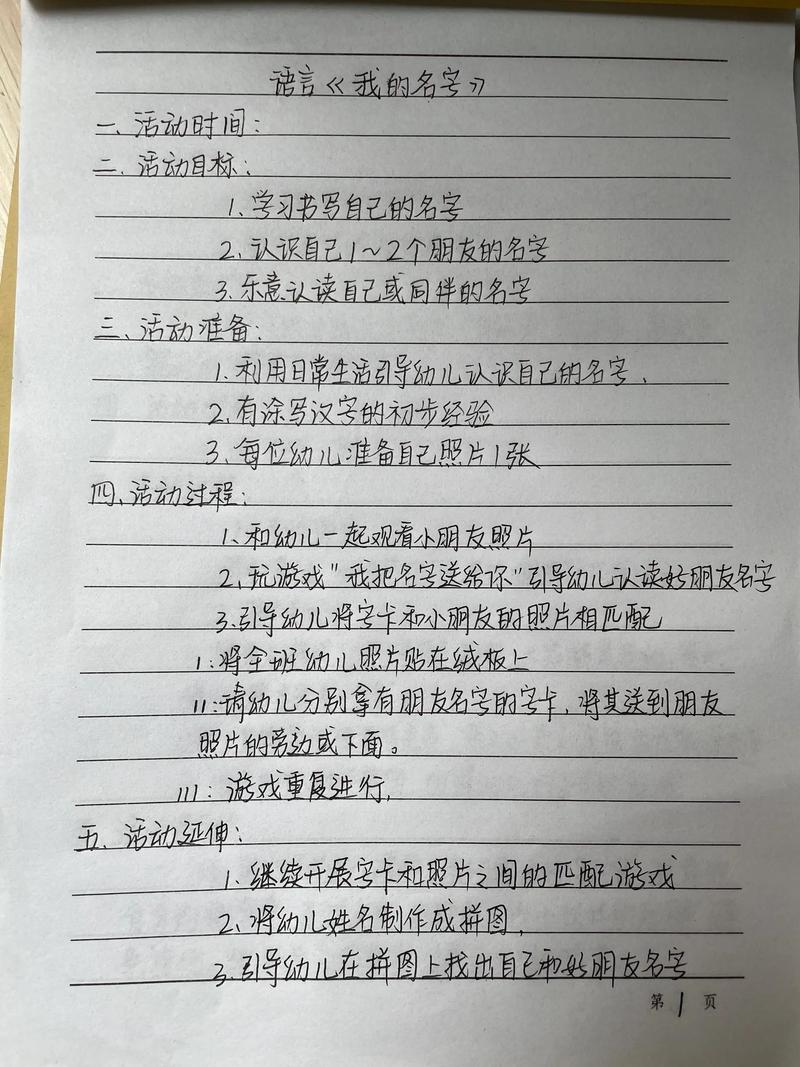 语言《我的名字》
一、活动时间：
二、活动目标：
1、学习书写自己的名字
2、认识自己1～2个朋友的名字
3、乐意认读自己或同伴的名字
三、活动准备：
1、利用日常生活引导幼儿认识自己的名字、
2、有涂写汉字的初步经验
3、每位幼儿准备自己照片1张
四、活动过程：
1、和幼儿一起观看小朋友照片
2、玩游戏"我把名字送给你"引导幼儿认读好朋友名字
3、引导幼儿将字卡和小朋友的照片相匹配
I：将全班幼儿照片贴在绒板上
II：请幼儿分别拿有朋友名字的字卡，将其送到朋友
照片的旁边或下面。
III：游戏重复进行，
五、活动延伸：
1、继续开展字卡和照片之间的匹配游戏
2、将幼儿姓名制作成拼图，
3、引导幼儿在拼图上找出自己和好朋友名字
第 1 页